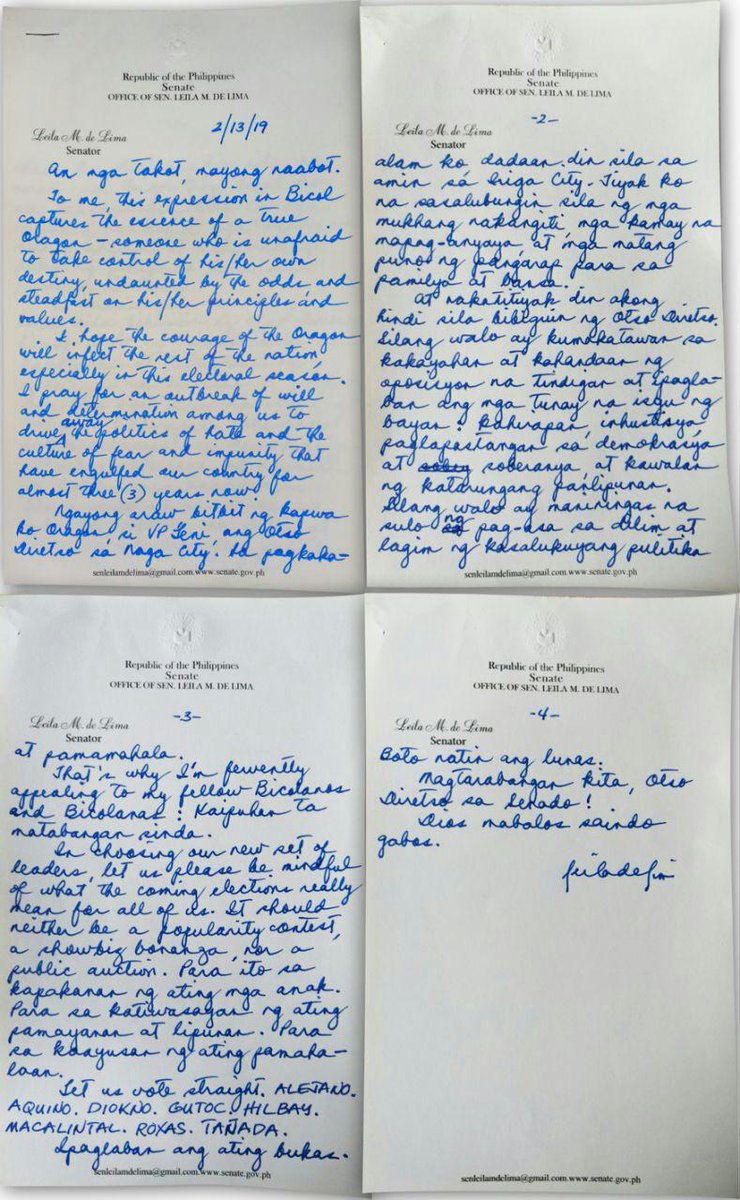 Republic of the Philippines
Senate
OFFICE OF SEN. LEILA M. DE LIMA
Leila M. de Lima
Senator
2/13/19
An mga takot, mayong naabot.
To me, this expression in Bicol
captures the essence of a true
Oragon – someone who is unafraid
to take control of his/her own
destiny, undaunted by the odds and
steadfast on his/her principles and
values.
I hope the courage of the Oragon
will infect the rest of the nation,
especially in this electoral season.
I pray for an outbreak of will
and determination among us to
drive away the politics of hate and the
culture of fear and impunity that
have engulfed our country for
almost three (3) years now.
Ngayong araw bitbit ng kapwa
ko Oragon, si VP Leni, ang Otso
Diretso sa Naga City. Sa pagkaka-
senleilamdelima@gmail.com.www.senate.gov.ph
Republic of the Philippines
Senate
OFFICE OF SEN. LEILA M. DE LIMA
-2-
Leila M. de Lima
Senator
alam ko dadaan din sila sa
amin sa Iriga City. Tiyak ko
na sasalubungin sila ng mga
mukhang nakangiti, mga kamay na
mapag-anyaya, at mga matang
puno ng pangarap para sa
pamilya at bansa.
At nakatitiyak din akong
hindi sila bibiguin ng Otso Diretso.
Silang walo ay kumakatawan sa
kakayahan at kahandaan ng
oposisyon na tindigan at ipagla-
ban ang mga tunay na isyu ng
bayan: kahirapan, inhustisya,
paglapastangan sa demokrasya
at soberanya, at kawalan
ng katarungang panlipunan.
Silang walo ay maniningas na
sulo ng pag-asa sa dilim at
lagim ng kasalukuyang pulitika
senleilamdelima@gmail.com.www.senate.gov.ph
Republic of the Philippines
Senate
OFFICE OF SEN. LEILA M. DE LIMA
-3-
Leila M. de Lima
Senator
at pamamahala.
That's why I'm fervently
appealing to my fellow Bicolanos
and Bicolanas: Kaipuhan ta
matabangan sinda.
In choosing our new set of
leaders, let us please be mindful
of what the coming elections really
mean for all of us. It should
neither be a popularity contest,
a showbiz bonanza, nor a
public auction. Para ito sa
kapakanan ng ating mga anak.
Para sa katiwasayan ng ating
pamayanan at lipunan. Para
sa kaayusan ng ating pamaha-
laan.
Let us vote straight. ALEJANO.
AQUINO. DIOKNO. GUTOC. HILBAY.
MACALINTAL. ROXAS. TAÑADA.
Ipaglaban ang ating bukas.
senleilamdelima@gmail.com.www.senate.gov.ph
Republic of the Philippines
Senate
OFFICE OF SEN. LEILA M. DE LIMA
-4-
Leila M. de Lima
Senator
Boto natin ang lunas.
Magtarabangan kita, Otso
Diretso sa Senado!
Dios mabalos saindo
gabos.
senleilamdelima@gmail.com.www.senate.gov.ph